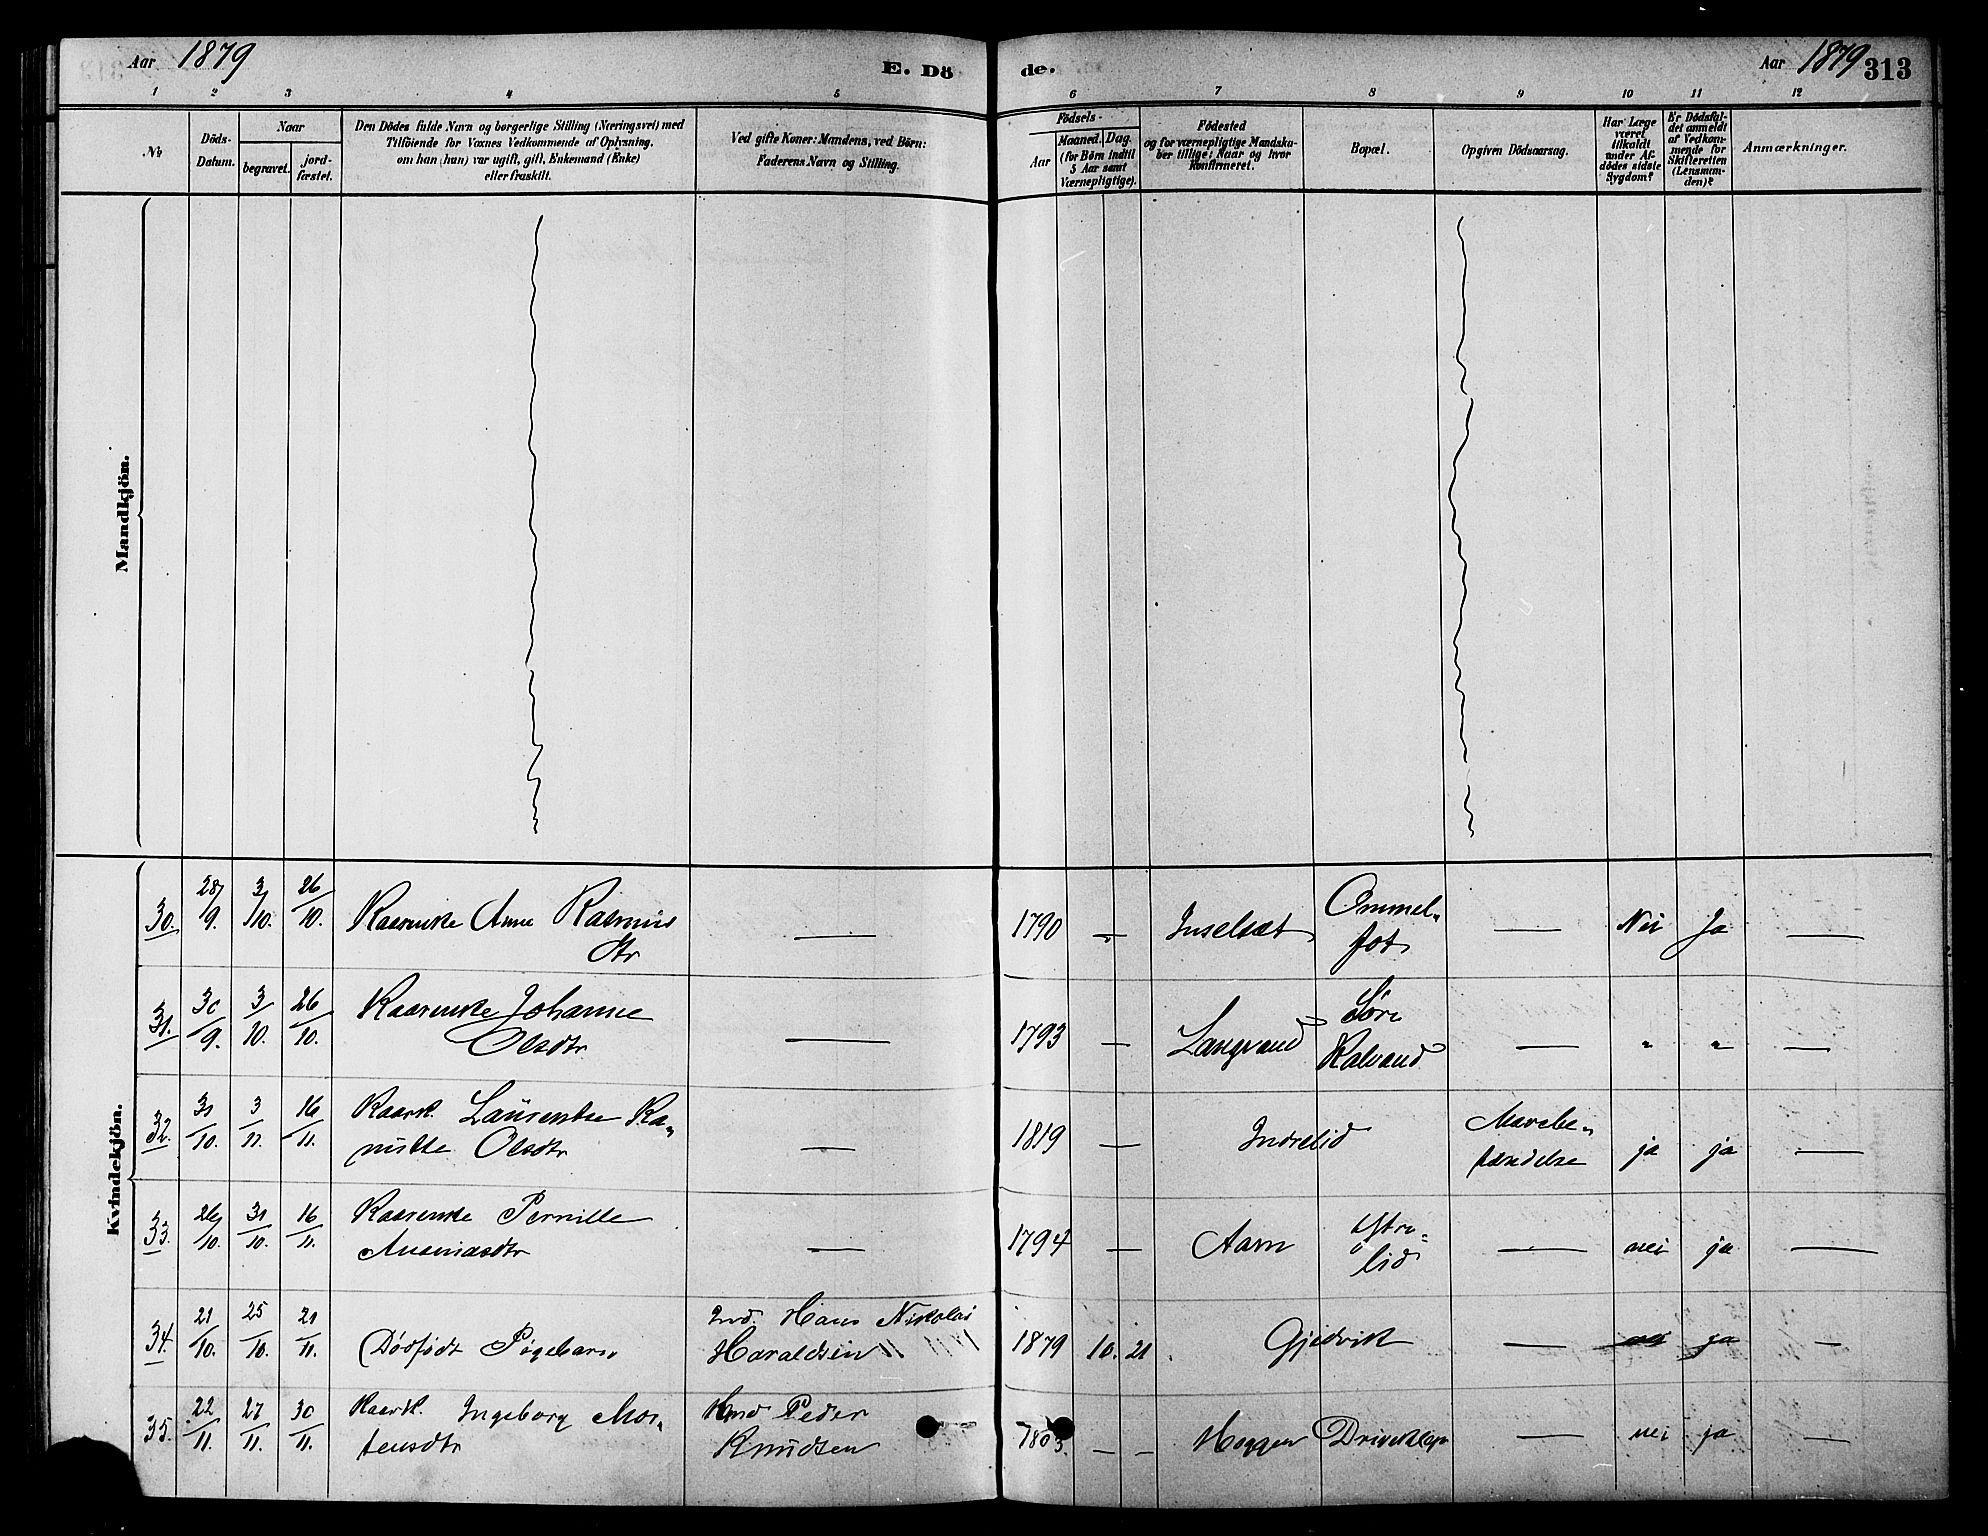 Aar 1879
E. Dö
de.
Aar 1879 313
1 2 3 4 5 6 7 8 9 10 11 12
№
Döds-
Datum.
Naar
begravet.
jord-
fæstet.
Den Dödes fulde Navn og borgerlige Stilling (Næringsvei) med
Tilföiende for Voxnes Vedkommende af Oplysning,
om han (hun) var ugift, gift, Enkemand (Enke)
eller fraskilt.
Ved gifte Koner: Mandens, ved Börn:
Faderens Navn og Stilling.
Födsels-
Aar
Maaned. Dag.
(for Börn indtil
5 Aar samt
Værnepligtige).
Födested
og for værnepligtige Mandska-
ber tillige: Naar og hvor
Konfirmeret.
Bopæl.
Opgiven Dödsaarsag.
Har Læge
været
tilkaldt
under Af-
dödes sidste
Sygdom?
Er Dödsfal-
det anmeldt
af Vedkom-
mende for
Skifteretten
(Lensman-
den)?
Anmærkninger.
Mandkjön.
Kvindekjön.
30. 28/9. 3/10. 26/10. Kaarenke Anne Rasmus
dtr — 1790 — Inselsæt Ommel-
fot — Nei Ja —
31. 30/9. 3/10. 26/10. Kaarenke Johanne
Olsdtr — 1793 — Langvand Søre
Kalvand — " " —
32. 31/10. 3/11. 16/11. Kaark. Laurentse Ka-
nutte Olsdtr — 1819 — Indrelid Mavebe-
tændelse ja ja —
33. 26/10. 31/10. 16/11. Kaarenke Pernille
Ananiasdtr — 1794 — Aarn Ytre-
lid — nei ja —
34. 21/10. 25/10. 21/11. Dødfødt Pigebarn Ind. Hans Nikolai
Haraldsen 1879 10. 21 Gjedvik — nei ja —
35. 22/11. 27/11. 30/11. Kaark. Ingeborg Mor-
tensdtr Kmd Peder
Knudsen 1803 — — Hoggen Driveklep — nei ja —